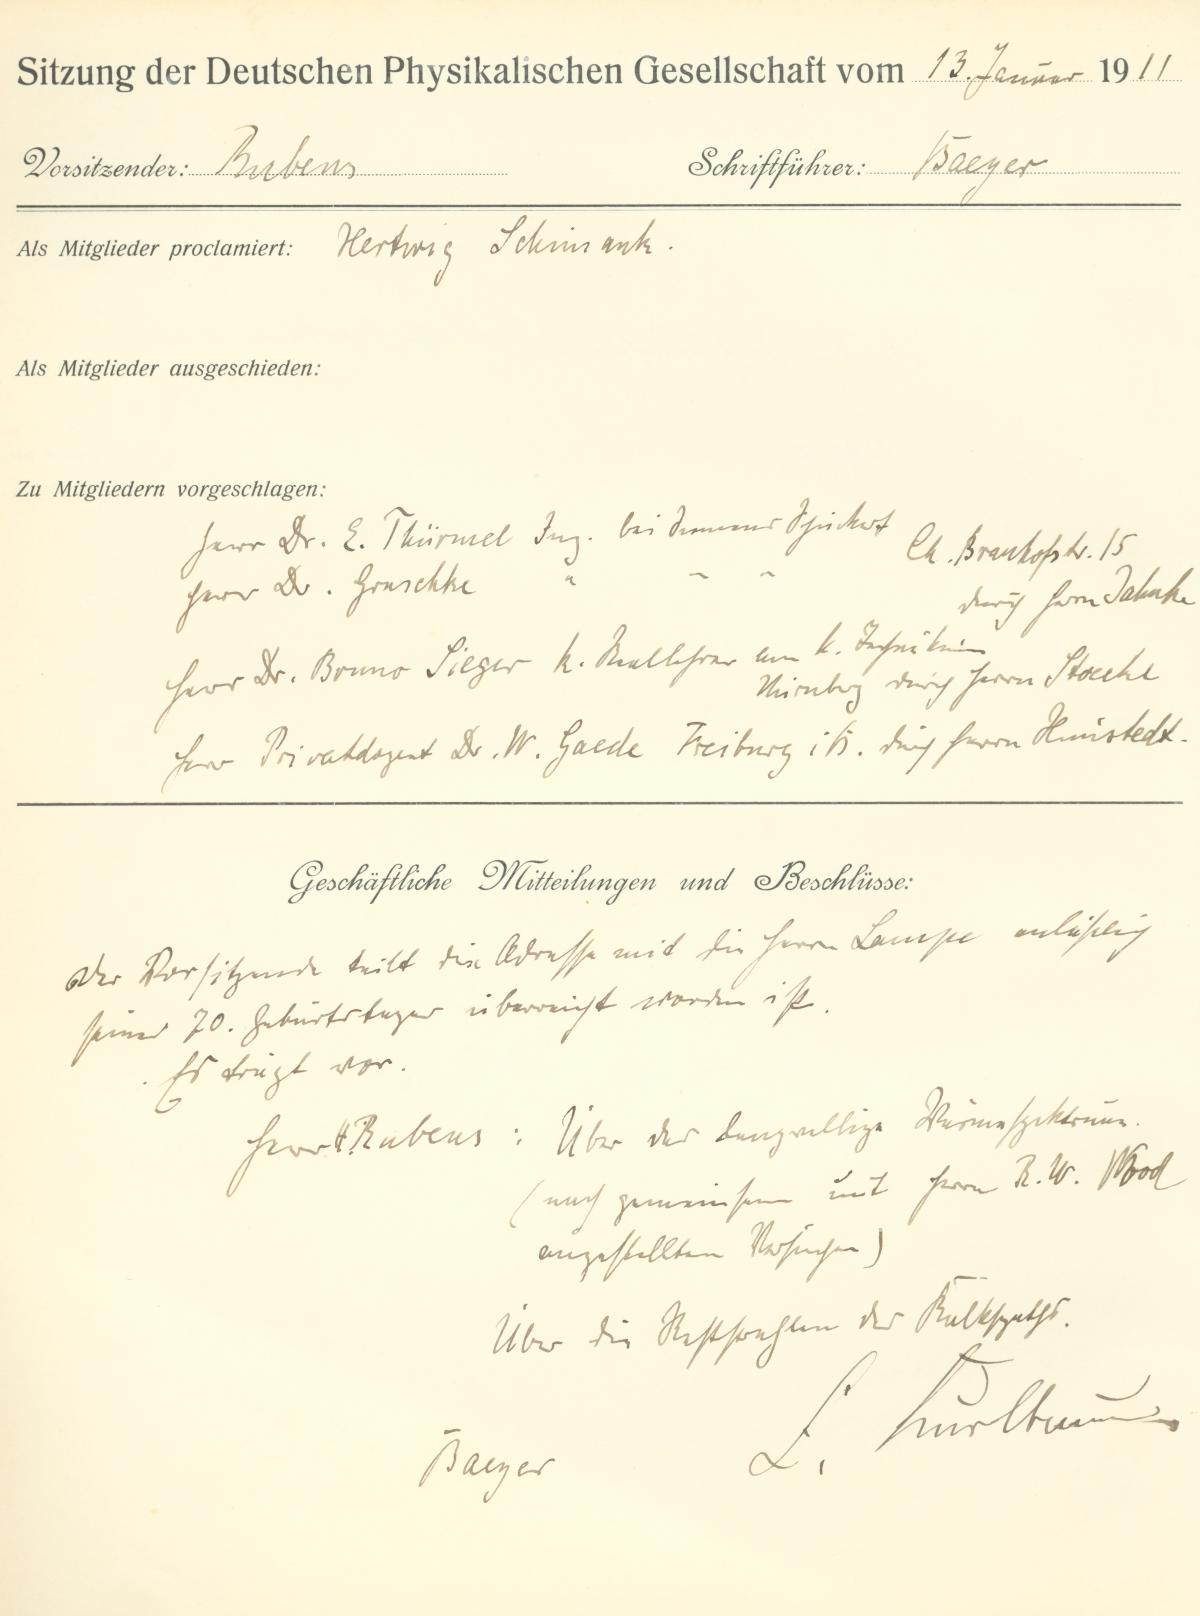 Sitzung der Deutschen Physikalischen Gesellschaft vom 13. Januar 1911
Vorsitzender: Rubens Schriftführer: Baeyer
Als Mitglieder proclamiert: Hertwig Schimank.
Als Mitglieder ausgeschieden:
Zu Mitgliedern vorgeschlagen:
Herr Dr. E. Thürmel Ing. bei Siemens Schuckert Ch. 15
Herr Dr. Gruschke " " " durch Herrn Jahnke
Herr Dr. Bruno Sieger k. Reallehrer am k. Technikum
Nürnberg durch Herrn Stoeckl
Herr Privatdozent Dr. W. Gaede Freiburg i/B. durch Herrn Himstedt.
Geschäftliche Mitteilungen und Beschlüsse:
Der Vorsitzende teilt die Adresse mit die Herrn Lampe anläßlich
seines 70. Geburtstages überreicht worden ist.
Es trägt vor.
Herr H. Rubens: Über das langwellige Wärmespektrum.
(nach gemeinsam mit Herrn R. W. Wood
angestellten Versuchen)
Über die Reststrahlen des Kalkspaths.
Baeyer F. Kurlbaum